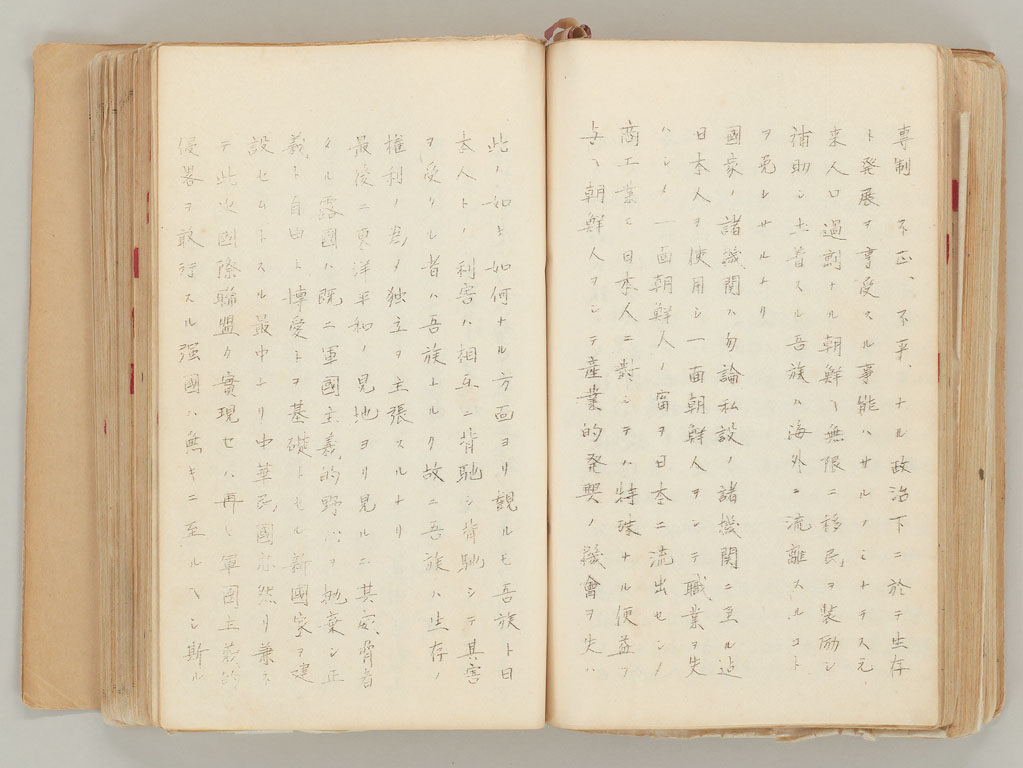 専制、不正、不平、ナル政治下ニ於テ生存
ト発展ヲ享受スル事能ハサルノミナラス元
来人口過剰ナル朝鮮ニ無限ニ移民ヲ奨励シ
補助シ土着スル吾族ハ海外ニ流離スルコト
ヲ免レサルナリ
国家ノ諸機関ハ勿論私設ノ諸機関ニ至ル迄
日本人ヲ使用シ一面朝鮮人ヲシテ職業ヲ失
ハシメ一面朝鮮人ノ富ヲ日本ニ流出セシメ
商工業ニ日本人ニ対シテハ特殊ナル便益ヲ
与ヘ朝鮮人ヲシテ産業的発興ノ機会ヲ失ハ
此ノ如ク如何ナル方面ヨリ観ルモ吾族ト日
本人トノ利害ハ相互ニ背馳シ背馳シテ其害
ヲ受クル者ハ吾族トルク故ニ吾族ハ生存ノ
権利ノ為メ独立ヲ主張スルナリ
最後ニ東洋平和ノ見地ヨリ見ルニ其威脅者
タル露国ハ既ニ軍国主義的野心ヲ抛棄シ正
義ト自由ト博愛トヲ基礎トセル新国家ヲ建
設セムトスル最中ナリ中華民国亦然リ兼ネ
テ此次国際聯盟ク実現セハ再ヒ軍国主義的
侵略ヲ敢行スル強国ハ無キニ至ルヘシ斯ル